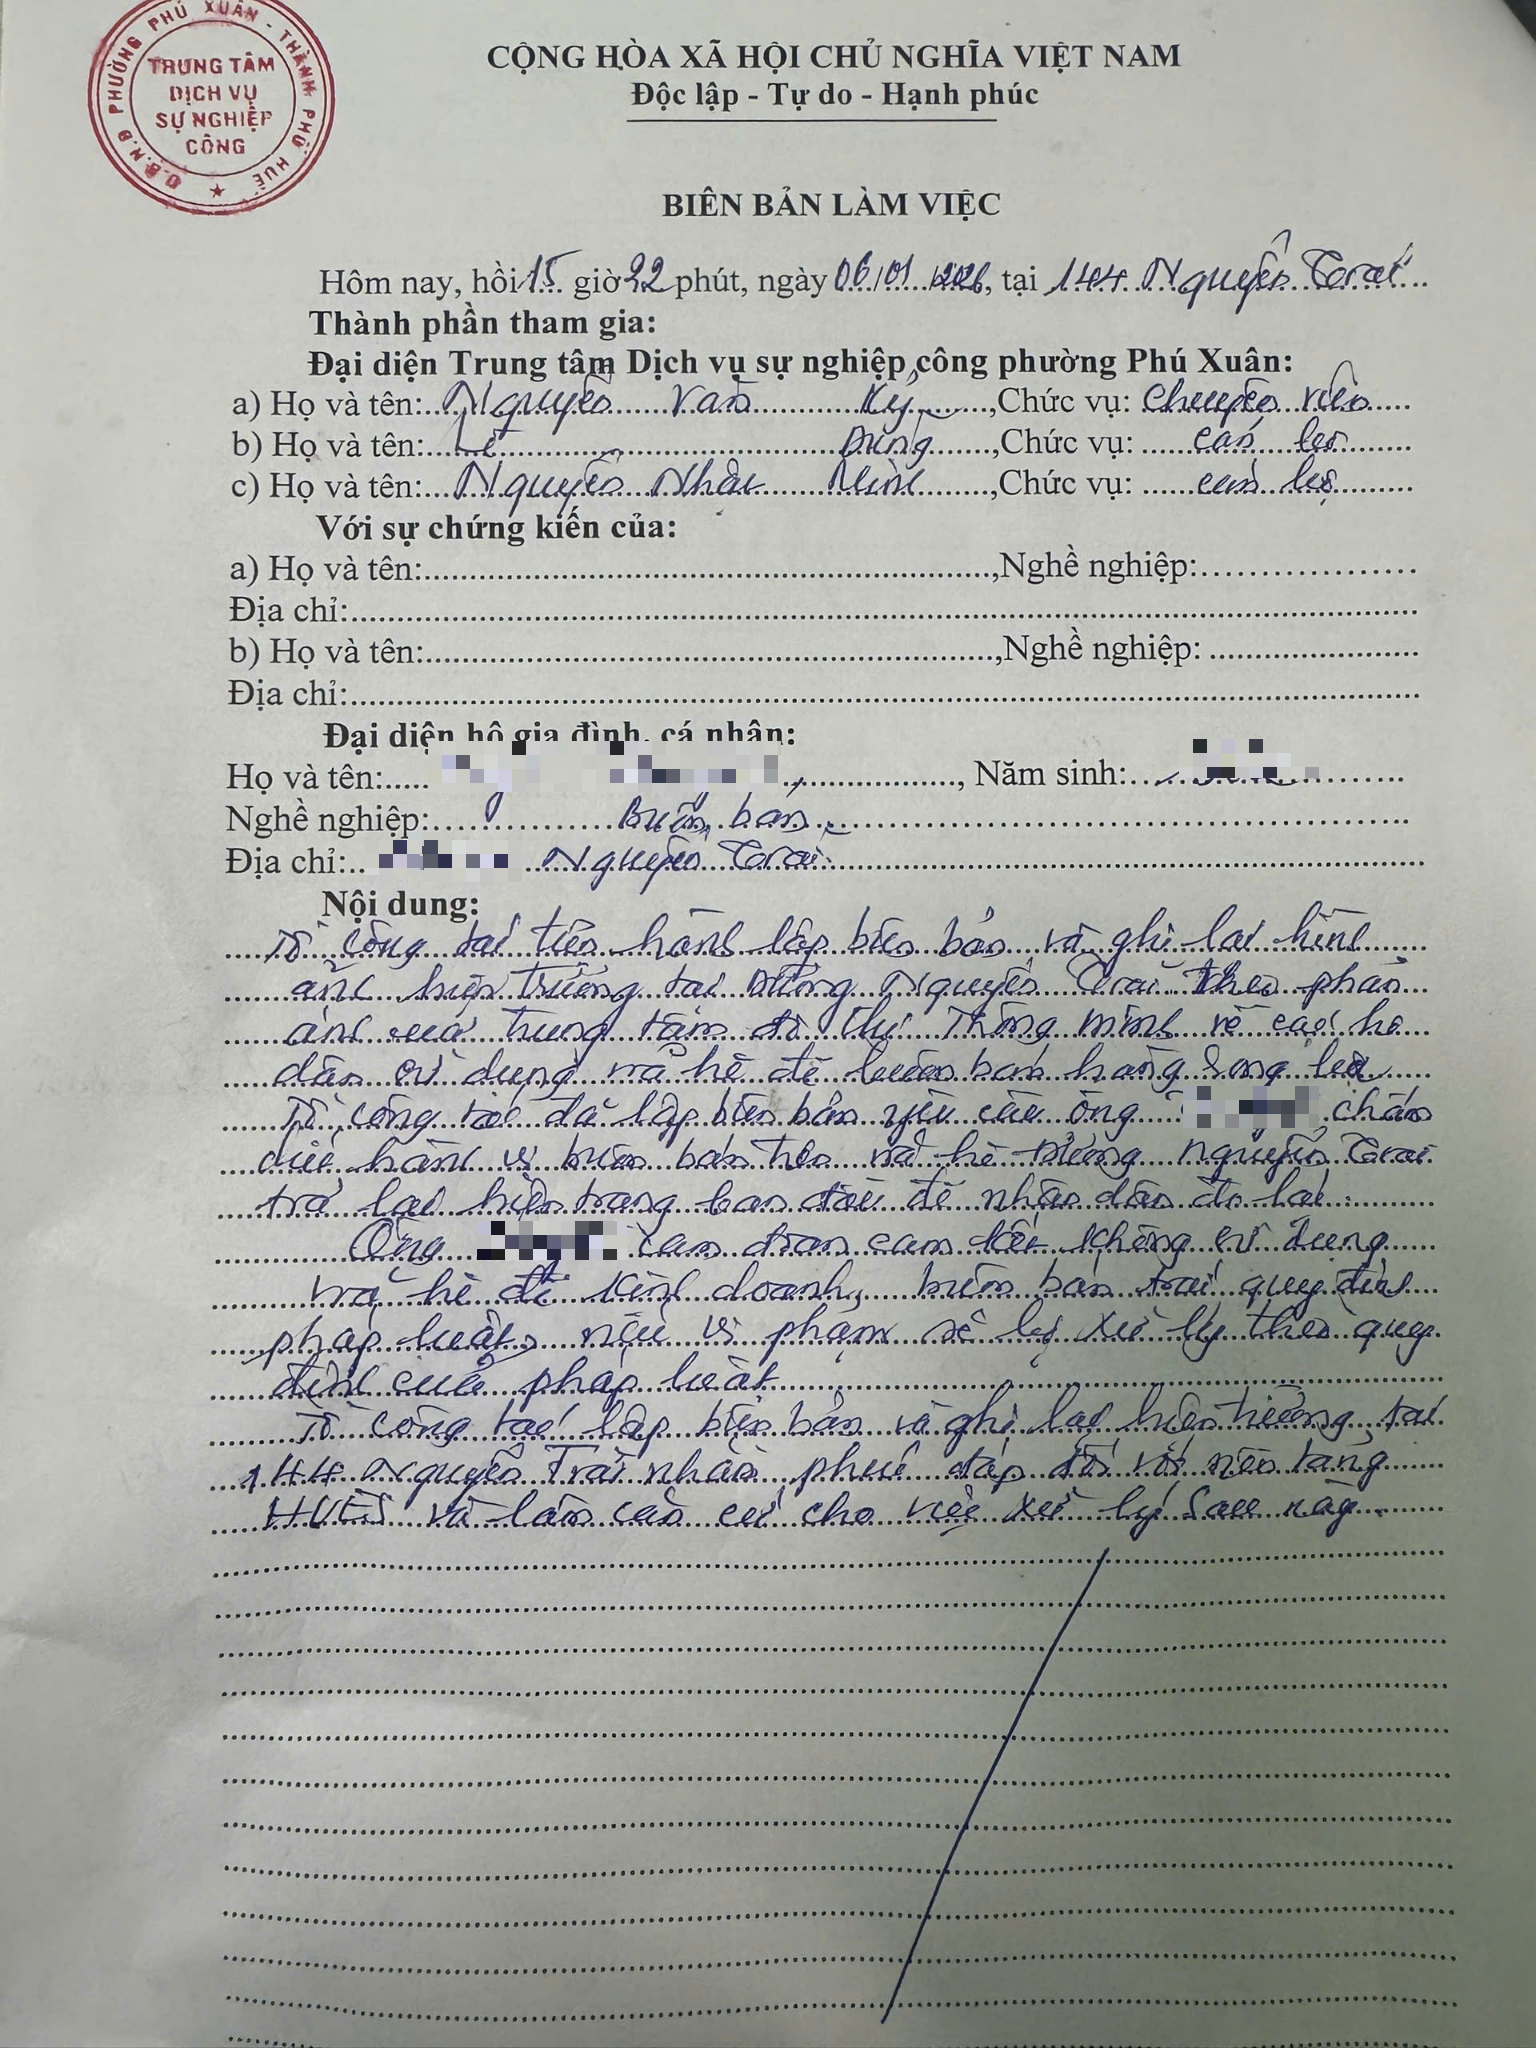 U.B.N.D PHƯỜNG PHÚ XUÂN - THÀNH PHỐ HUẾ
TRUNG TÂM
DỊCH VỤ
SỰ NGHIỆP
CÔNG
CỘNG HÒA XÃ HỘI CHỦ NGHĨA VIỆT NAM
Độc lập - Tự do - Hạnh phúc
BIÊN BẢN LÀM VIỆC
Hôm nay, hồi 15 giờ 22 phút, ngày 06/01/2026, tại 144 Nguyễn Trãi
Thành phần tham gia:
Đại diện Trung tâm Dịch vụ sự nghiệp công phường Phú Xuân:
a) Họ và tên: Nguyễn Văn Kỷ, Chức vụ: Chuyên viên
b) Họ và tên: Lê Dũng, Chức vụ: cán bộ
c) Họ và tên: Nguyễn Nhật Minh, Chức vụ: cán bộ
Với sự chứng kiến của:
a) Họ và tên: ,Nghề nghiệp:
Địa chỉ:
b) Họ và tên: ,Nghề nghiệp:
Địa chỉ:
Đại diện hộ gia đình, cá nhân:
Họ và tên: , Năm sinh:
Nghề nghiệp: Buôn bán
Địa chỉ: Nguyễn Trãi
Nội dung:
Tổ công tác tiến hành lập biên bản và ghi lại hình
ảnh hiện trường tại đường Nguyễn Trãi theo phản
ánh của trung tâm đô thị thông minh về các hộ
dân sử dụng vỉa hè để buôn bán hàng
Tổ công tác đã lập biên bản yêu cầu ông chấm
dứt hành vi buôn bán trên vỉa hè đường Nguyễn Trãi
trả lại hiện trạng ban đầu để nhân dân đi lại.
Ông cam đoan cam kết không sử dụng
vỉa hè để kinh doanh, buôn bán trái quy định
pháp luật, nếu vi phạm sẽ bị xử lý theo quy
định của pháp luật
Tổ công tác lập biên bản và ghi lại hiện trường tại
144 Nguyễn Trãi nhằm phúc đáp đối với nền tảng
HUES và làm căn cứ cho việc xử lý sau này.